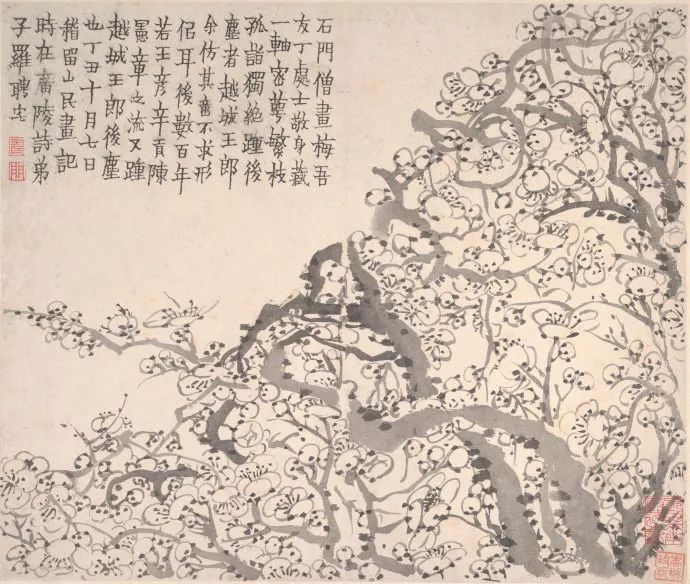 石門僧畫梅吾
友丁處士敬身藏
一軸密萼繁枝
孤詣獨絕踵後
塵者越城王郎
余仿其意不求形
似耳後數百年
若王彥辛貢陳
憲章之流又踵
越城王郎後塵
也丁丑十月七日
稽留山民畫記
時在廣陵詩弟
子羅聘宅